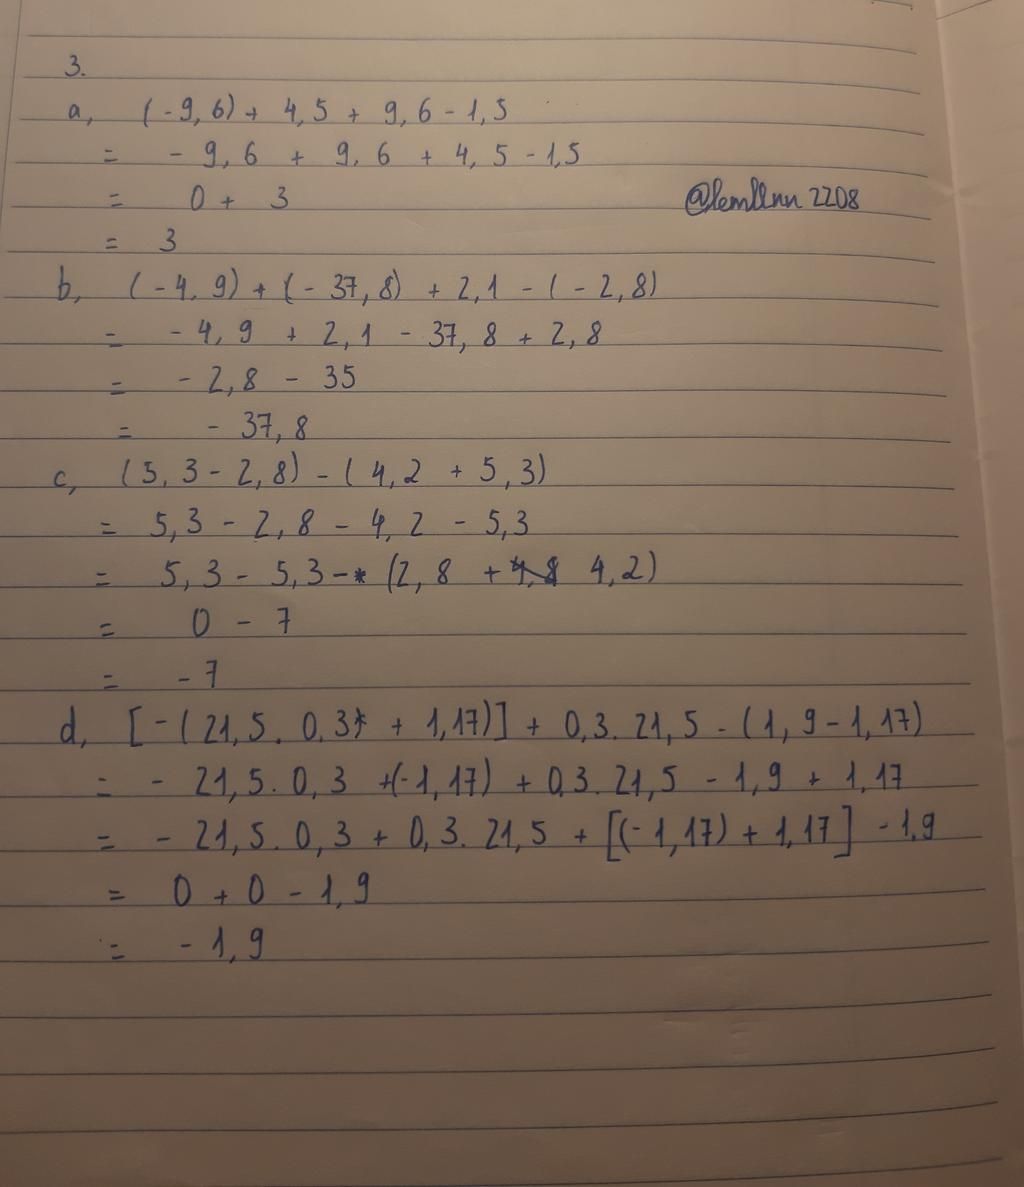 3.
a, (-9,6) + 4,5 + 9,6 - 1,5
= - 9,6 + 9,6 + 4,5 - 1,5
= 0 + 3
@lemllnn2208
= 3
b, (-4,9) + (-37,8) + 2,1 - (-2,8)
= - 4,9 + 2,1 - 37,8 + 2,8
= - 2,8 - 35
= - 37,8
c, (5,3 - 2,8) - (4,2 + 5,3)
= 5,3 - 2,8 - 4,2 - 5,3
= 5,3 - 5,3 - (2,8 + 4,2)
= 0 - 7
= - 7
d, [-(21,5 . 0,3 + 1,17)] + 0,3 . 21,5 - (1,9 - 1,17)
= - 21,5 . 0,3 + (-1,17) + 0,3 . 21,5 - 1,9 + 1,17
= - 21,5 . 0,3 + 0,3 . 21,5 + [(-1,17) + 1,17] - 1,9
= 0 + 0 - 1,9
= - 1,9